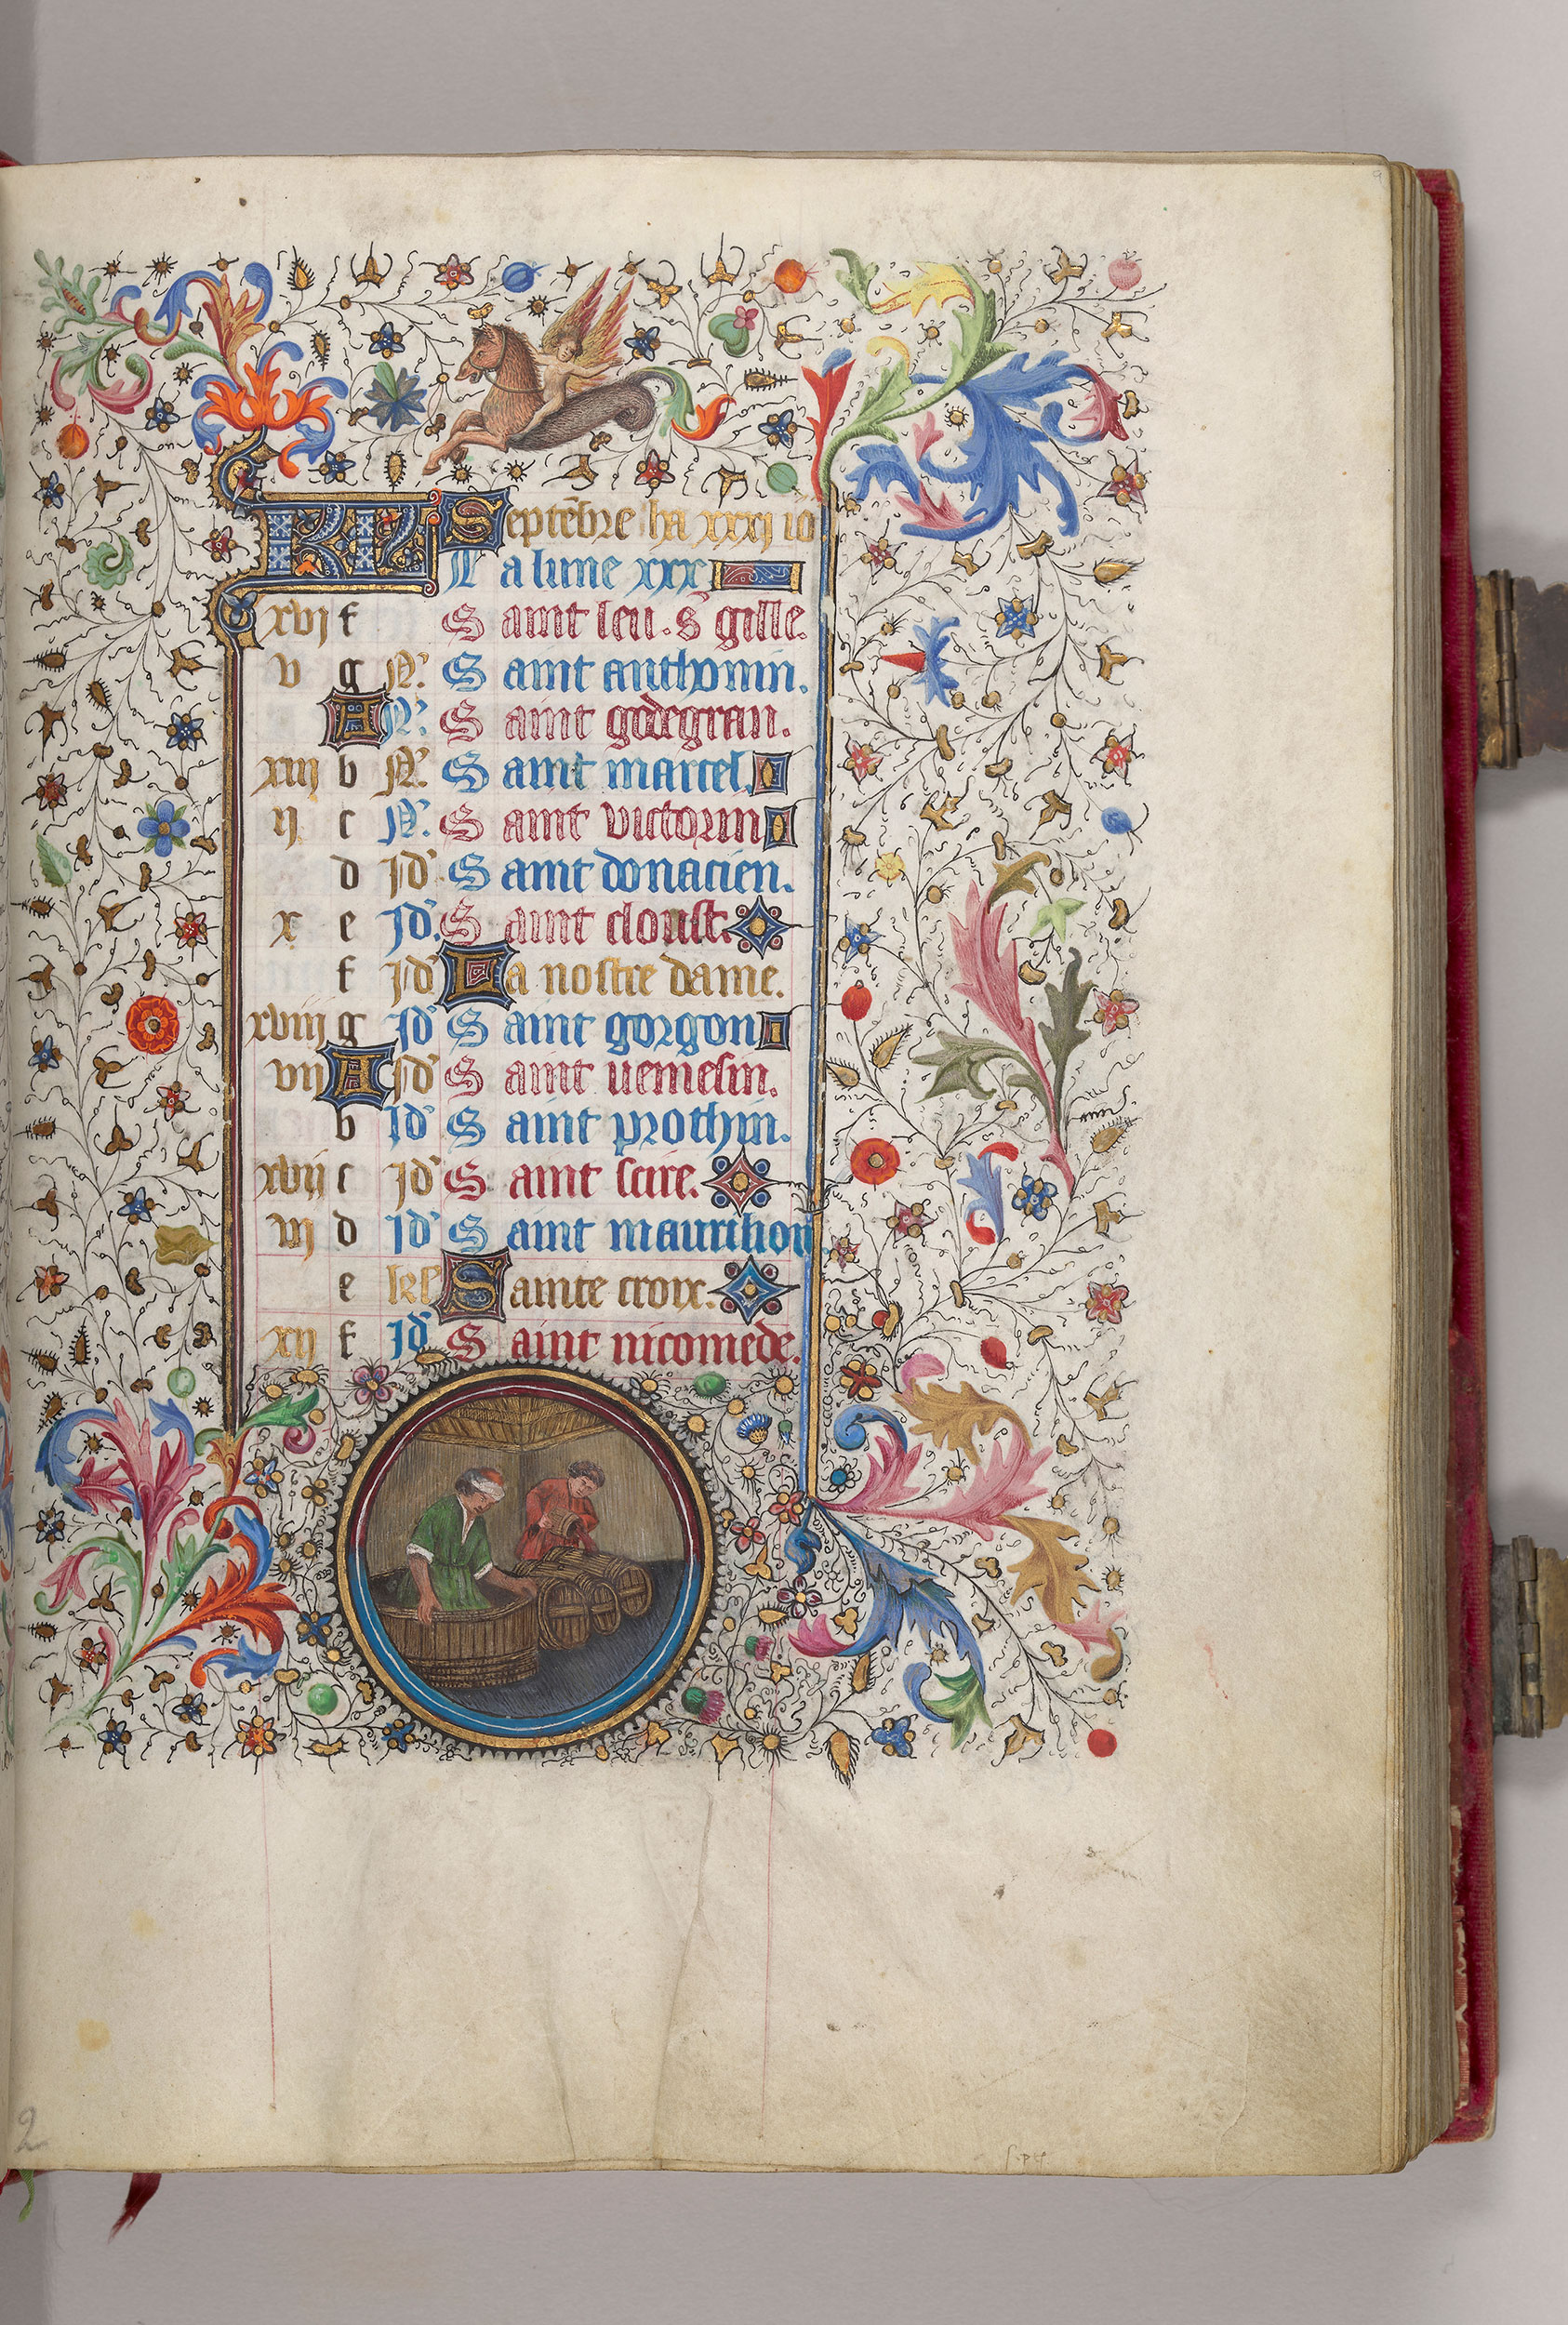 KL Septēbre ha xxxj io
La lune xxx
xvj f Saint leu. s' gille.
v g N' Saint anthonin.
A N' Saint godegran.
xiij b N' Saint marcel.
ij c N' Saint victorin
d Jd' Saint donacien.
x e Jd' Saint cloust.
f Jd' La nostre dame.
xviij g Jd' Saint gorgon
vij A Jd' Saint
b Jd' Saint prothin.
xvij c Jd' Saint scire.
vj d Jd' Saint maurilion
e kl' Sainte croix.
xij f Jd' Saint nicomede.
2